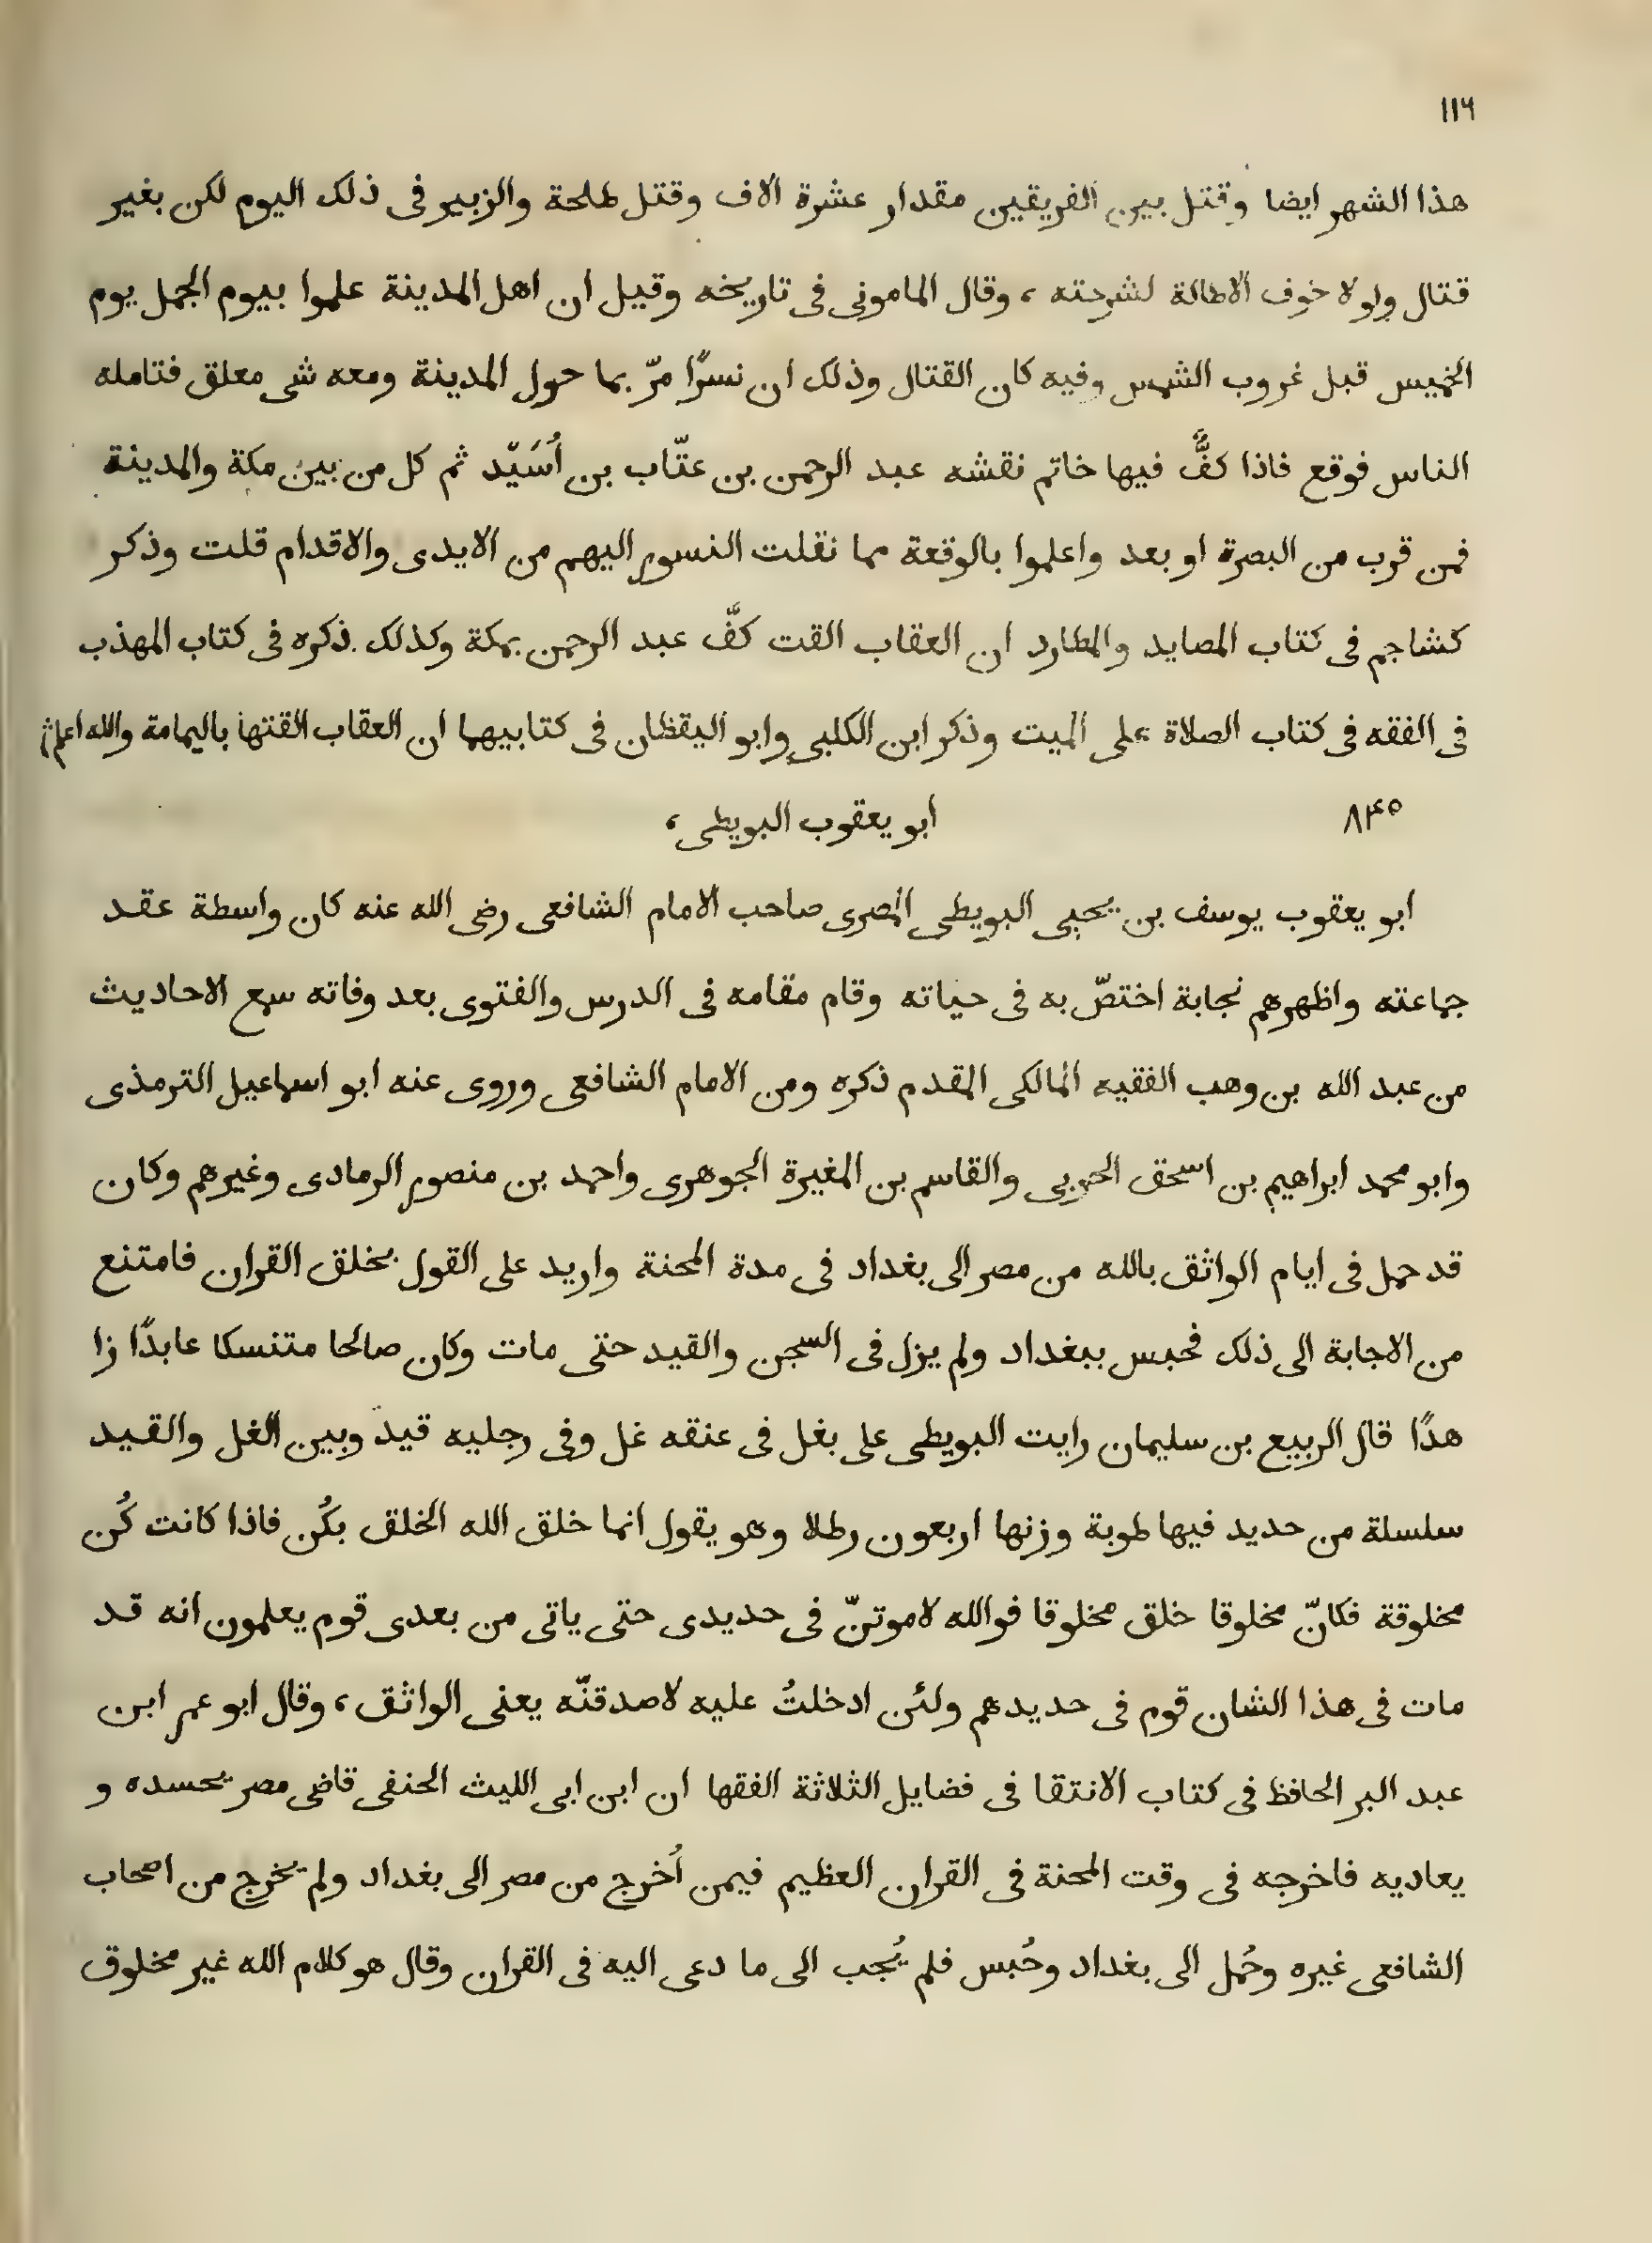 ١١٦
هذا الشهر ايضا وقتل بين الفريقين مقدار عشرة الاف وقتل طلحة والزبير فى ذلك اليوم لكن بغير
قتال ولولا خوف الاطالة لشرحته، وقال المامونى فى تاريخه وقيل ان اهل المدينة علموا بيوم الجمل يوم
الخميس قبل غروب الشمس وفيه كان القتال وذلك ان نسرًا مرّ بما حول المدينة ومعه شى معلق فتامله
الناس فوقع فاذا كفٌّ فيها خاتم نقشه عبد الرحمن بن عتّاب بن أُسَيّد ثم كل من بين مكة والمدينة
فمن قرب من البصرة او بعد واعلموا بالوقعة مما نقلت النسور اليهم من الايدى والاقدام قلت وذكر
كشاجم فى كتاب المصايد والمطارد ان العقاب القت كفّ عبد الرحمن بمكة وكذلك ذكره فى كتاب المهذب
فى الفقه فى كتاب الصلاة على الميت وذكر ابن الكلبى وابو اليقظان فى كتابيهما ان العقاب القتها باليمامة والله اعلم
٨٤٥ ابو يعقوب البويطى،
ابو يعقوب يوسف بن يحيى البويطى المصرى صاحب الامام الشافعى رضى الله عنه كان واسطة عقد
جماعته واظهرهم نجابة اختصّ به فى حياته وقام مقامه فى الدرس والفتوى بعد وفاته سمع الاحاديث
من عبد الله بن وهب الفقيه المالكى المقدم ذكره ومن الامام الشافعى وروى عنه ابو اسماعيل الترمذى
وابو محمد ابراهيم بن اسحق الحربى والقاسم بن المغيرة الجوهرى واحمد بن منصور الرمادى وغيرهم وكان
قد حمل فى ايام الواثق بالله من مصر الى بغداد فى مدة المحنة واريد على القول بخلق القران فامتنع
من الاجابة الى ذلك فحبس ببغداد ولم يزل فى السجن والقيد حتى مات وكان صالحا متنسكا عابدًا زا
هدًا قال الربيع بن سليمان رايت البويطى على بغل فى عنقه غل وفى رجليه قيد وبين الغل والقيد
سلسلة من حديد فيها طوبة وزنها اربعون رطلا وهو يقول انما خلق الله الخلق بكُن فاذا كانت كُن
مخلوقة فكانّ مخلوقا خلق مخلوقا فوالله لاموتنّ فى حديدى حتى ياتى من بعدى قوم يعلمون انه قد
مات فى هذا الشان قوم فى حديدهم ولئن ادخلتُ عليه لاصدقنّه يعنى الواثق، وقال ابو عمر ابن
عبد البر الحافظ فى كتاب الانتقا فى فضايل الثلاثة الفقها ان ابن ابى الليث الحنفى قاضى مصر يحسده و
يعاديه فاخرجه فى وقت المحنة فى القران العظيم فيمن أُخرج من مصر الى بغداد ولم يخرج من اصحاب
الشافعى غيره وحُمل الى بغداد وحُبس فلم يُجب الى ما دعى اليه فى القران وقال هو كلام الله غير مخلوق